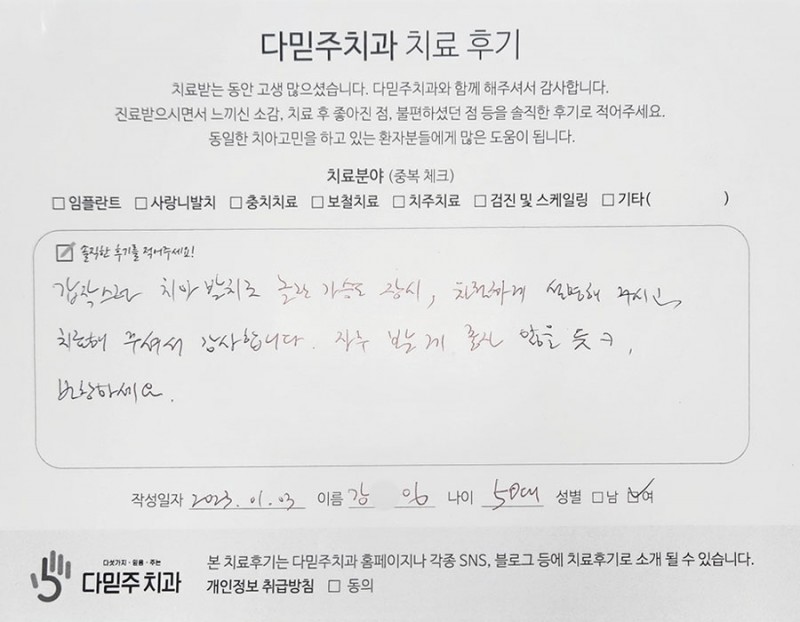 다믿주치과 치료 후기
치료받는 동안 고생 많으셨습니다. 다믿주치과와 함께 해주셔서 감사합니다.
진료받으시면서 느끼신 소감, 치료 후 좋아진 점, 불편하셨던 점 등을 솔직한 후기로 적어주세요.
동일한 치아고민을 하고 있는 환자분들에게 많은 도움이 됩니다.
치료분야 (중복 체크)
☐ 임플란트 ☐ 사랑니발치 ☐ 충치치료 ☐ 보철치료 ☐ 치주치료 ☐ 검진 및 스케일링 ☐ 기타( )
☑ 솔직한 후기를 적어주세요!
갑작스런 치아 발치로 놀란 가슴도 잠시, 친절하게 설명해 주시고,
치료해 주셔서 감사합니다. 자주 보는게 좋진 않을 듯ㅋ,
번창하세요.
작성일자 2023. 01. 03 이름 강 임 나이 50대 성별 ☐남 ☑여
다섯가지·믿음·주는
다믿주치과
본 치료후기는 다믿주치과 홈페이지나 각종 SNS, 블로그 등에 치료후기로 소개 될 수 있습니다.
개인정보 취급방침 ☐ 동의